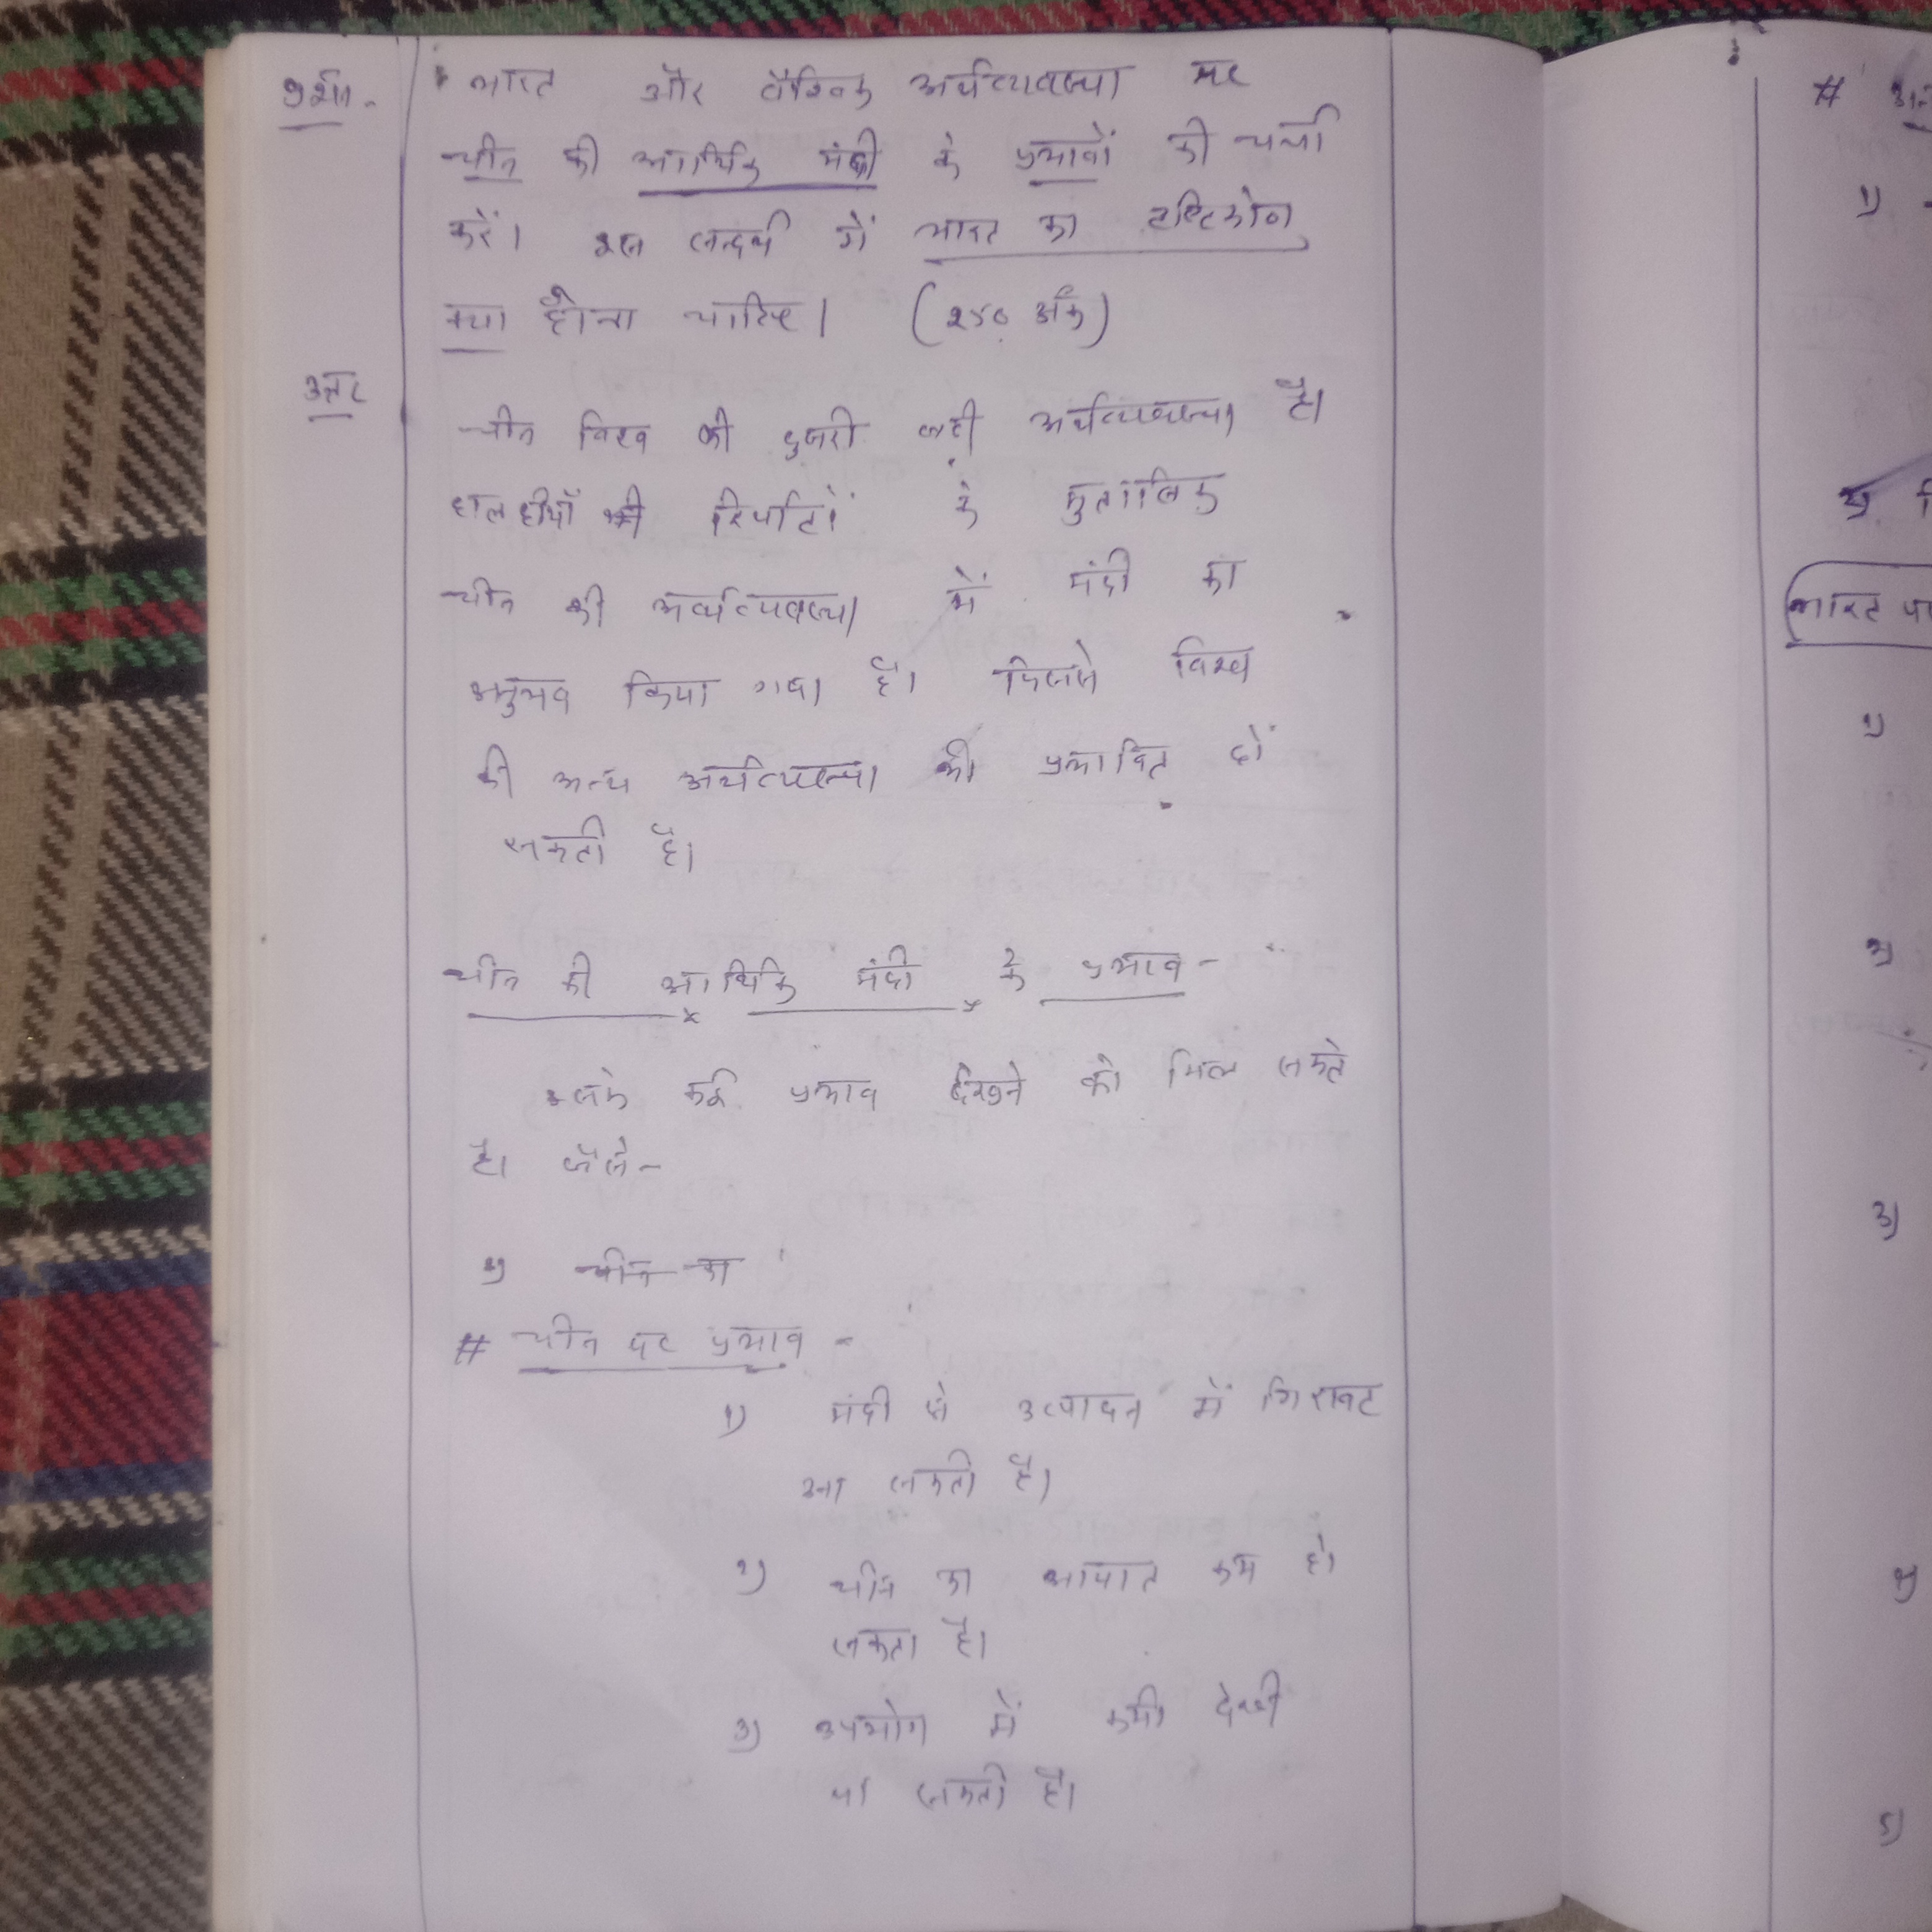 प्रश्न - भारत और वैश्विक अर्थव्यवस्था पर
चीन की आर्थिक मंदी के प्रभावों की चर्चा
करें। इस सन्दर्भ में भारत का दृष्टिकोण
क्या होना चाहिए। (250 अंक)
उत्तर
चीन विश्व की दुसरी बड़ी अर्थव्यवस्था है।
हालहीयाँ की रिपोर्टों के मुताबिक
चीन की अर्थव्यवस्था में मंदी का
अनुभव किया गया है। जिससे विश्व
की अन्य अर्थव्यवस्था भी प्रभावित हो
सकती है।
चीन की आर्थिक मंदी के प्रभाव -
इसके कई प्रभाव देखने को मिल सकते
है। जैसे -
1) चीन का
# चीन पर प्रभाव -
1) मंदी से उत्पादन में गिरावट
आ सकती है।
2) चीन का आयात कम हो
सकता है।
3) उपभोग में कमी देखी
जा सकती है।
#
1)
2)
भारत
1)
2)
3)
4)
5)